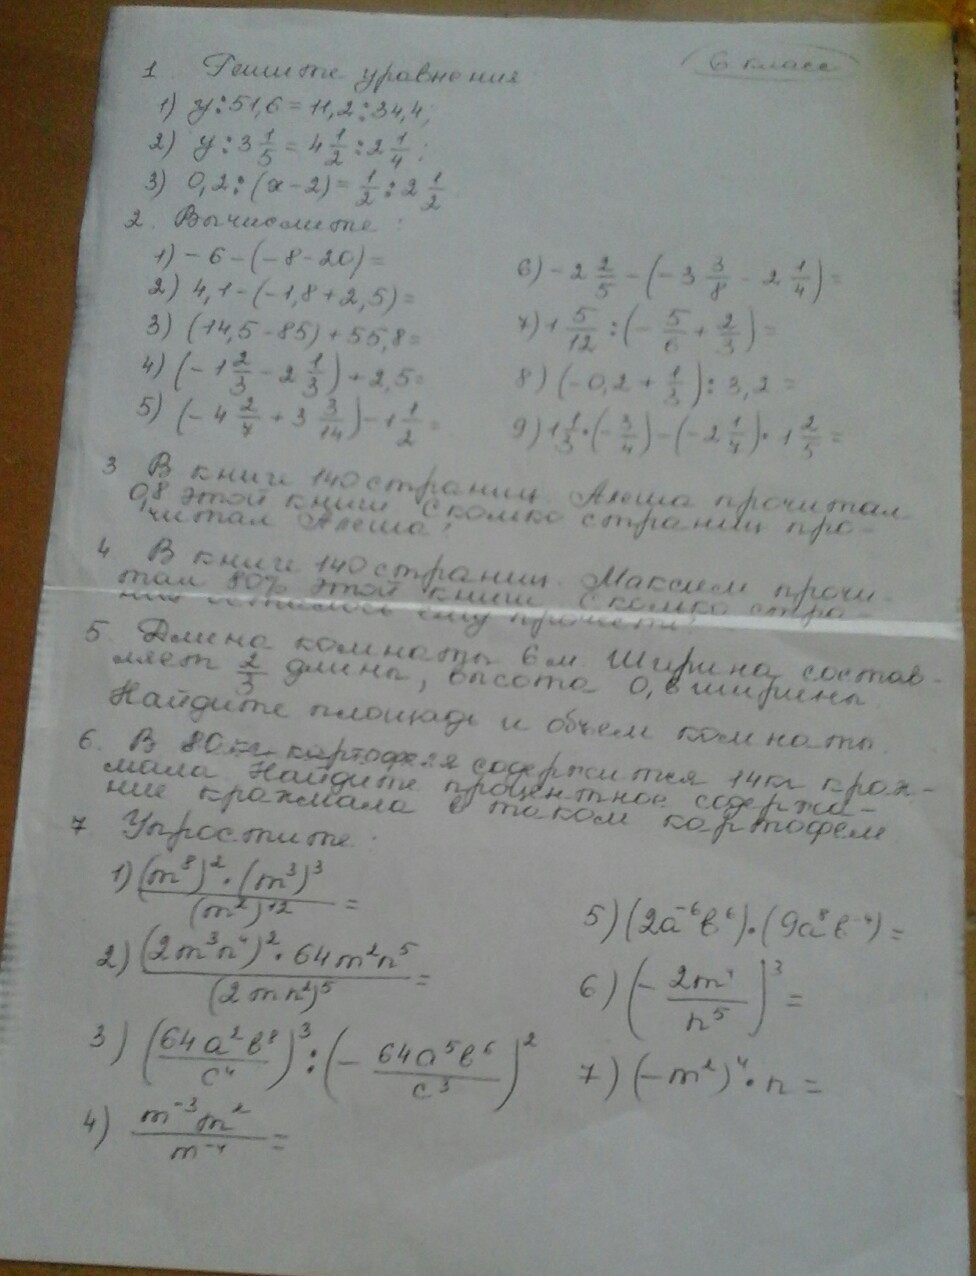 6 класс
1. Решите уравнения
1) y : 51,6 = 11,2 : 34,4;
2) y : 3 1/5 = 4 1/2 : 2 1/4;
3) 0,2 : (x - 2) = 1/2 : 2 1/2
2. Вычислите:
1) - 6 - (- 8 - 20) =
2) 4,1 - (- 1,8 + 2,5) =
3) (14,5 - 85) + 55,8 =
4) (- 1 2/3 - 2 1/3) + 2,5 =
5) (- 4 2/7 + 3 3/14) - 1 1/2 =
6) - 2 2/5 - (- 3 3/8 - 2 1/4) =
7) 1 5/12 : (- 5/6 + 2/3) =
8) (- 0,2 + 1/3) : 3,2 =
9) 1 1/3 · (- 3/4) - (- 2 1/7) · 1 2/5 =
3 В книге 140 страниц. Алеша прочитал
0,8 этой книги. Сколко страниц про-
читал Алеша?
4 В книге 140 страниц. Максим прочи-
тал 80% этой книги. Сколко стра-
ниц осталось ему прочесть?
5. Длина комнаты 6 м. Ширина состав-
ляет 2/3 длины, высота 0,6 ширины.
Найдите площадь и объем комнаты.
6. В 80 кг картофеля содержится 14 кг крах-
мала. Найдите процентное содержа-
ние крахмала в таком картофеле.
7 Упростите:
1) (m⁸)² · (m³)³ / (m²)¹² =
2) (2m³n⁴)² · 64m²n⁵ / (2mn²)⁵ =
3) (64a²b⁸ / c⁴)³ : (- 64a⁵b⁶ / c³)² 
4) m⁻³m² / m⁻⁴ =
5) (2a⁻⁶b⁶) · (9a⁸b⁻⁴) =
6) (- 2m / n⁵)³ =
7) (-m²)⁴ · n =